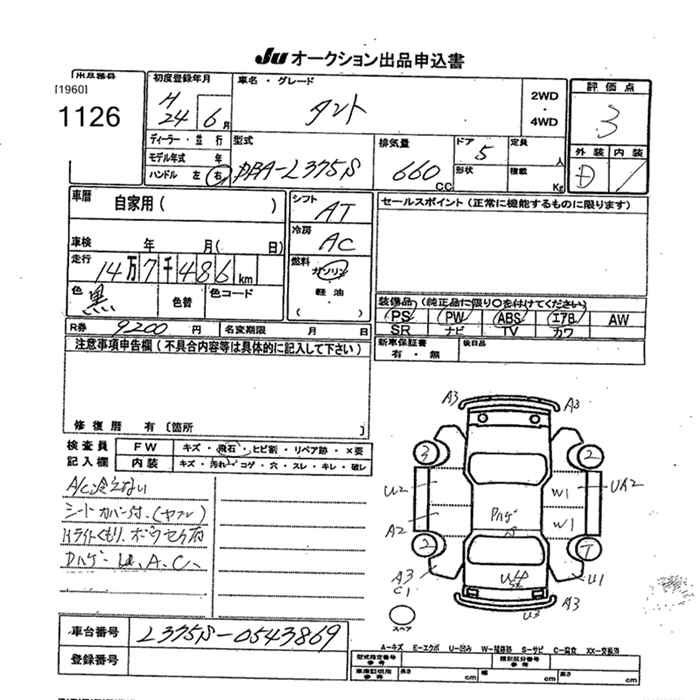 JU オークション出品申込書
出品番号
[1960]
1126
初度登録年月
H 24年 6月
車名・グレード
タント
2WD
・
4WD
評価点
3
外装 内装
D
ディーラー・並行
モデル年式 年
ハンドル 左 右
型式
DBA-L375S
排気量
660 CC
ドア 5
形状
定員 人
積載 Kg
車歴 自家用( )
シフト AT
セールスポイント(正常に機能するものに限ります)
車検 年 月( 日)
冷房 AC
走行 14万7千486km
燃料 ガソリン
軽油
( )
色 黒 色替 色コード
装備品(純正品に限り○を付けてください)
PS PW ABS エアB AW
SR ナビ TV カワ
R券 9200円 名変期限 月 日
新車保証書 有・無 後日品
注意事項申告欄(不具合内容等は具体的に記入して下さい)
修復歴 有〔箇所 〕
検査員記入欄
FW キズ・飛石・ヒビ割・リペア跡・×要
内装 キズ・汚れ・コゲ・穴・スレ・キレ・破レ
A/C冷えない
シートカバー付.(ヤブレ)
Hライトくもり.
A3 A3
3 2
U2 W1 UA2
A2 W1
Pハゲ
2
A3 C1 U1
U3 A3
スペア
A-キズ E-エクボ U-凹み W-補修跡 S-サビ C-腐食 XX-交換済
車台番号 L375S-0543869
登録番号
型式指定番号 参考
類別区分番号 参考
車庫証明用 参考 長さ cm 幅 cm 高さ cm